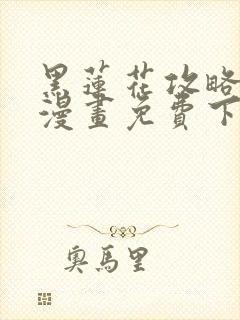 黑蓮花攻略
漫畫免費下
奧馬里